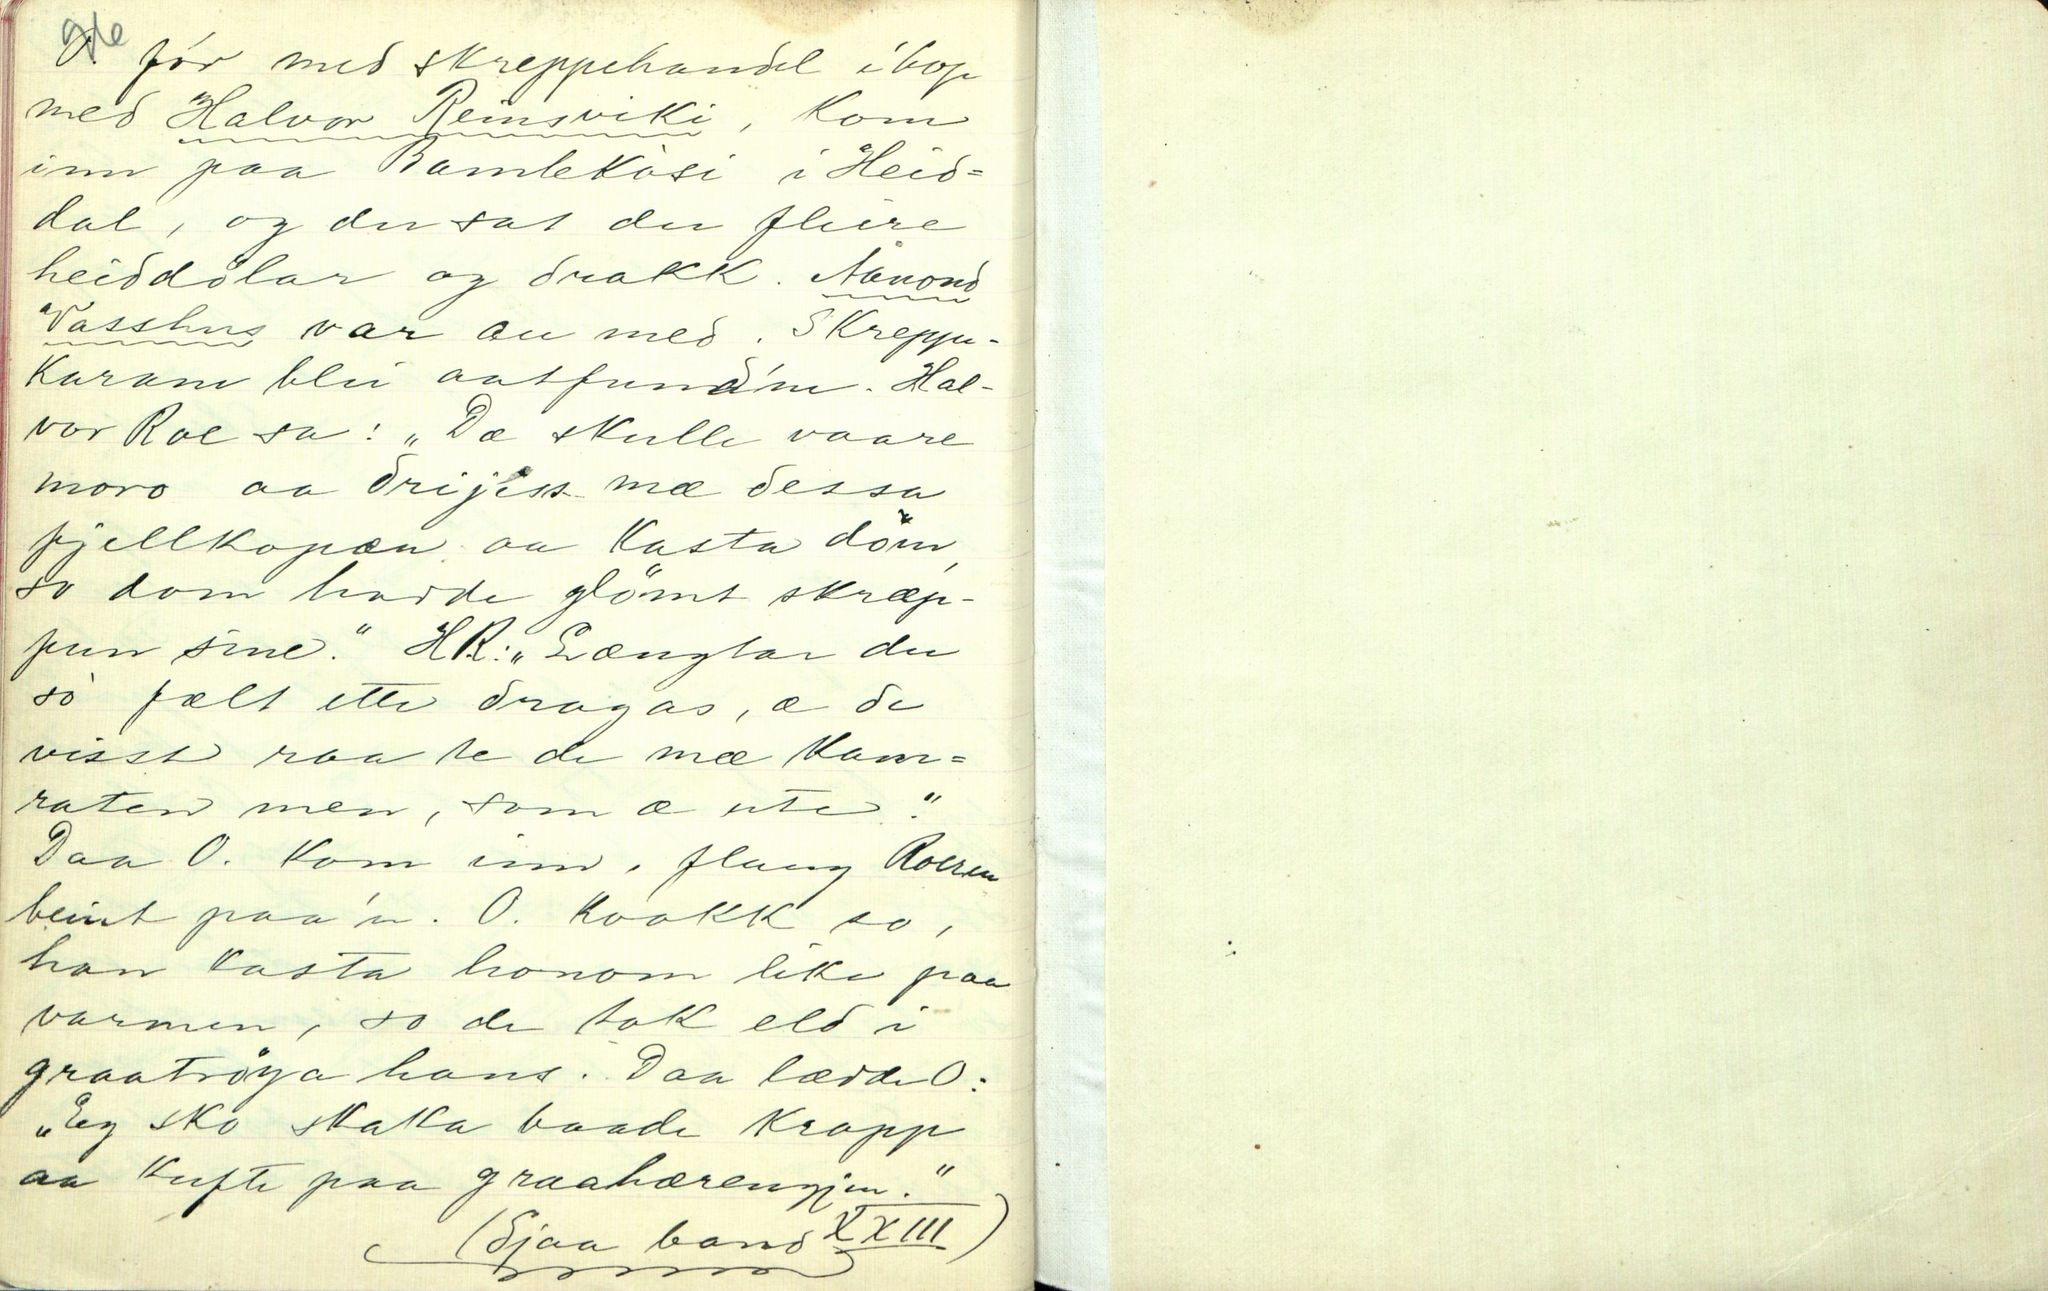 O. fór med skreppehandel ibop
med Halvor Reinsviki, kom
inn paa Bamlekåsi i Heid=
dal, og der sat der fleire
heiddölar og drakk. Aanond
Vasshus var au med. Skreppu-
karann blei aatfund'ne. Hal-
vor Roe sa: „Dæ skulle vaare
moro aa drijass mæ dessa
fjellkopæn aa kasta dòm,
so dom hadde glömt skræp-
pun sine." HR: „Længtar du
sò fælt ette dragas, æ de
visst raa te de mæ kam=
raten men, som æ ute."
Daa O. kom inn, flaug Roeren
beint paa'n. O. kvakk so,
han kasta honom like paa
varmen, so de tok eld i
graatröya hans. Daa lædde O:
„Eg sko skaka baade kropp
aa kufte paa graahærengjen."
(Sjaa band XXIII)